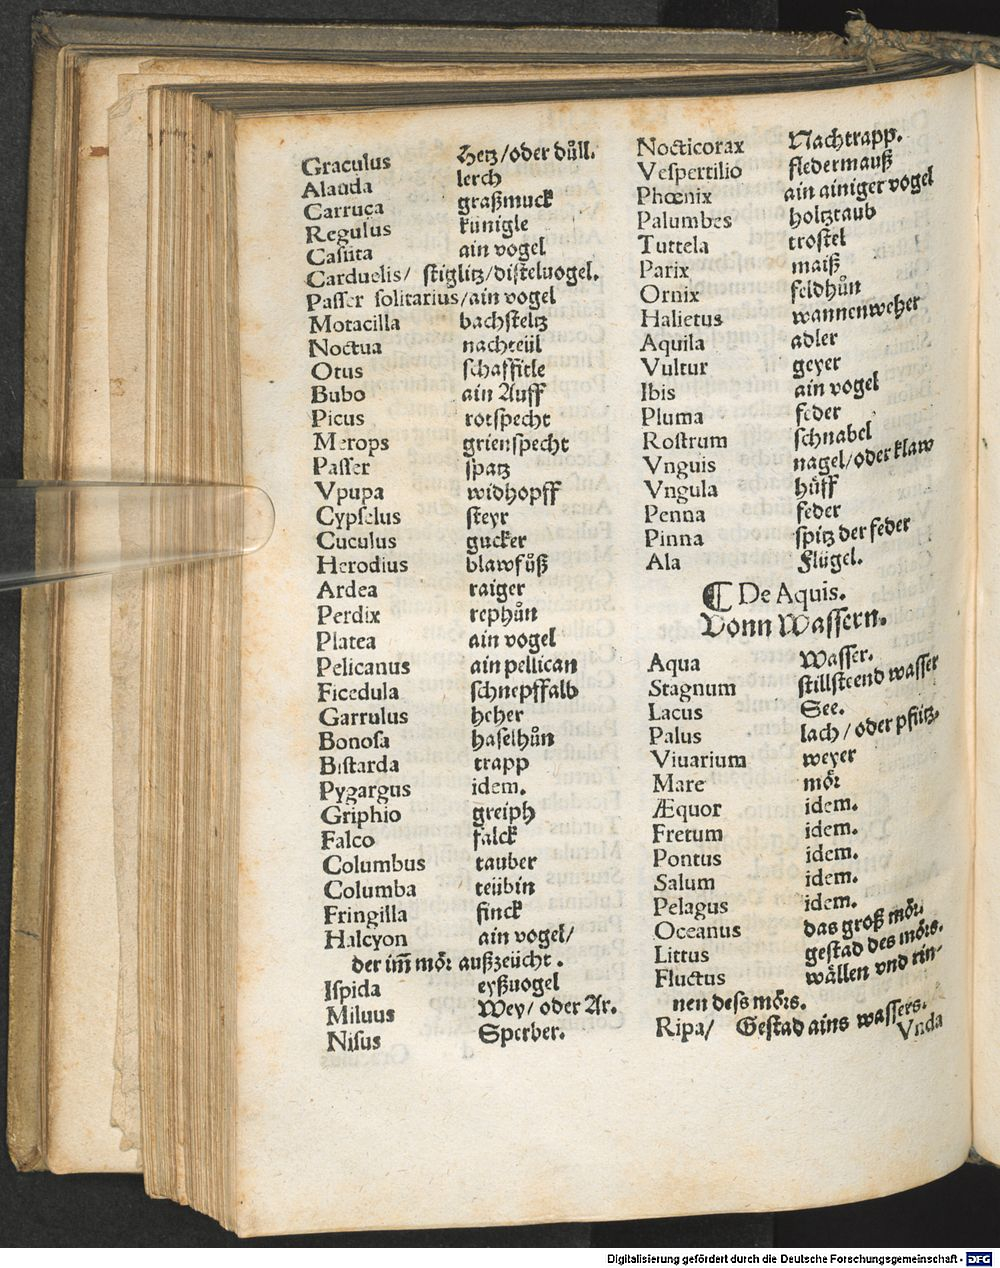 Graculus Hetz/oder důll.
Alauda lerch
Carruca graßmuck
Regulus künigle
Cassita ain vogel
Carduelis/ stiglitz/distelvogel.
Passer solitarius/ain vogel
Motacilla bachsteltz
Noctua nachteül
Otus schaffitle
Bubo ain Auff
Picus rotspecht
Merops grienspecht
Passer spatz
Vpupa widhopff
Cypselus steyr
Cuculus gucker
Herodius blawfůß
Ardea raiger
Perdix rephůn
Platea ain vogel
Pelicanus ain pellican
Ficedula schnepffalb
Garrulus heher
Bonosa haselhůn
Bistarda trapp
Pygargus idem.
Griphio greiph
Falco falck
Columbus tauber
Columba teübin
Fringilla finck
Halcyon ain vogel/
der im̃ mör außzeücht.
Ispida eyßuogel
Miluus Wey/ oder Ar.
Nisus Sperber.
Nocticorax Nachtrapp.
Vespertilio fledermauß
Phœnix ain ainiger vogel
Palumbes holtztaub
Tuttela trostel
Parix maiß
Ornix feldhůn
Halietus wannenweher
Aquila adler
Vultur geyer
Ibis ain vogel
Pluma feder
Rostrum schnabel
Vnguis nagel/oder klaw
Vngula hůff
Penna feder
Pinna spitz der feder
Ala Flügel.
¶ De Aquis.
Vonn Wassern.
Aqua Wasser.
Stagnum stillsteend wasser
Lacus See.
Palus lach/ oder pfütz.
Viuarium weyer
Mare mör
Æquor idem.
Fretum idem.
Pontus idem.
Salum idem.
Pelagus idem.
Oceanus das groß mör.
Littus gestad des mörs.
Fluctus wällen vnd rin-
nen dess mörs.
Ripa/ Gestad ains wassers.
Vnda
Digitalisierung gefördert durch die Deutsche Forschungsgemeinschaft - DFG